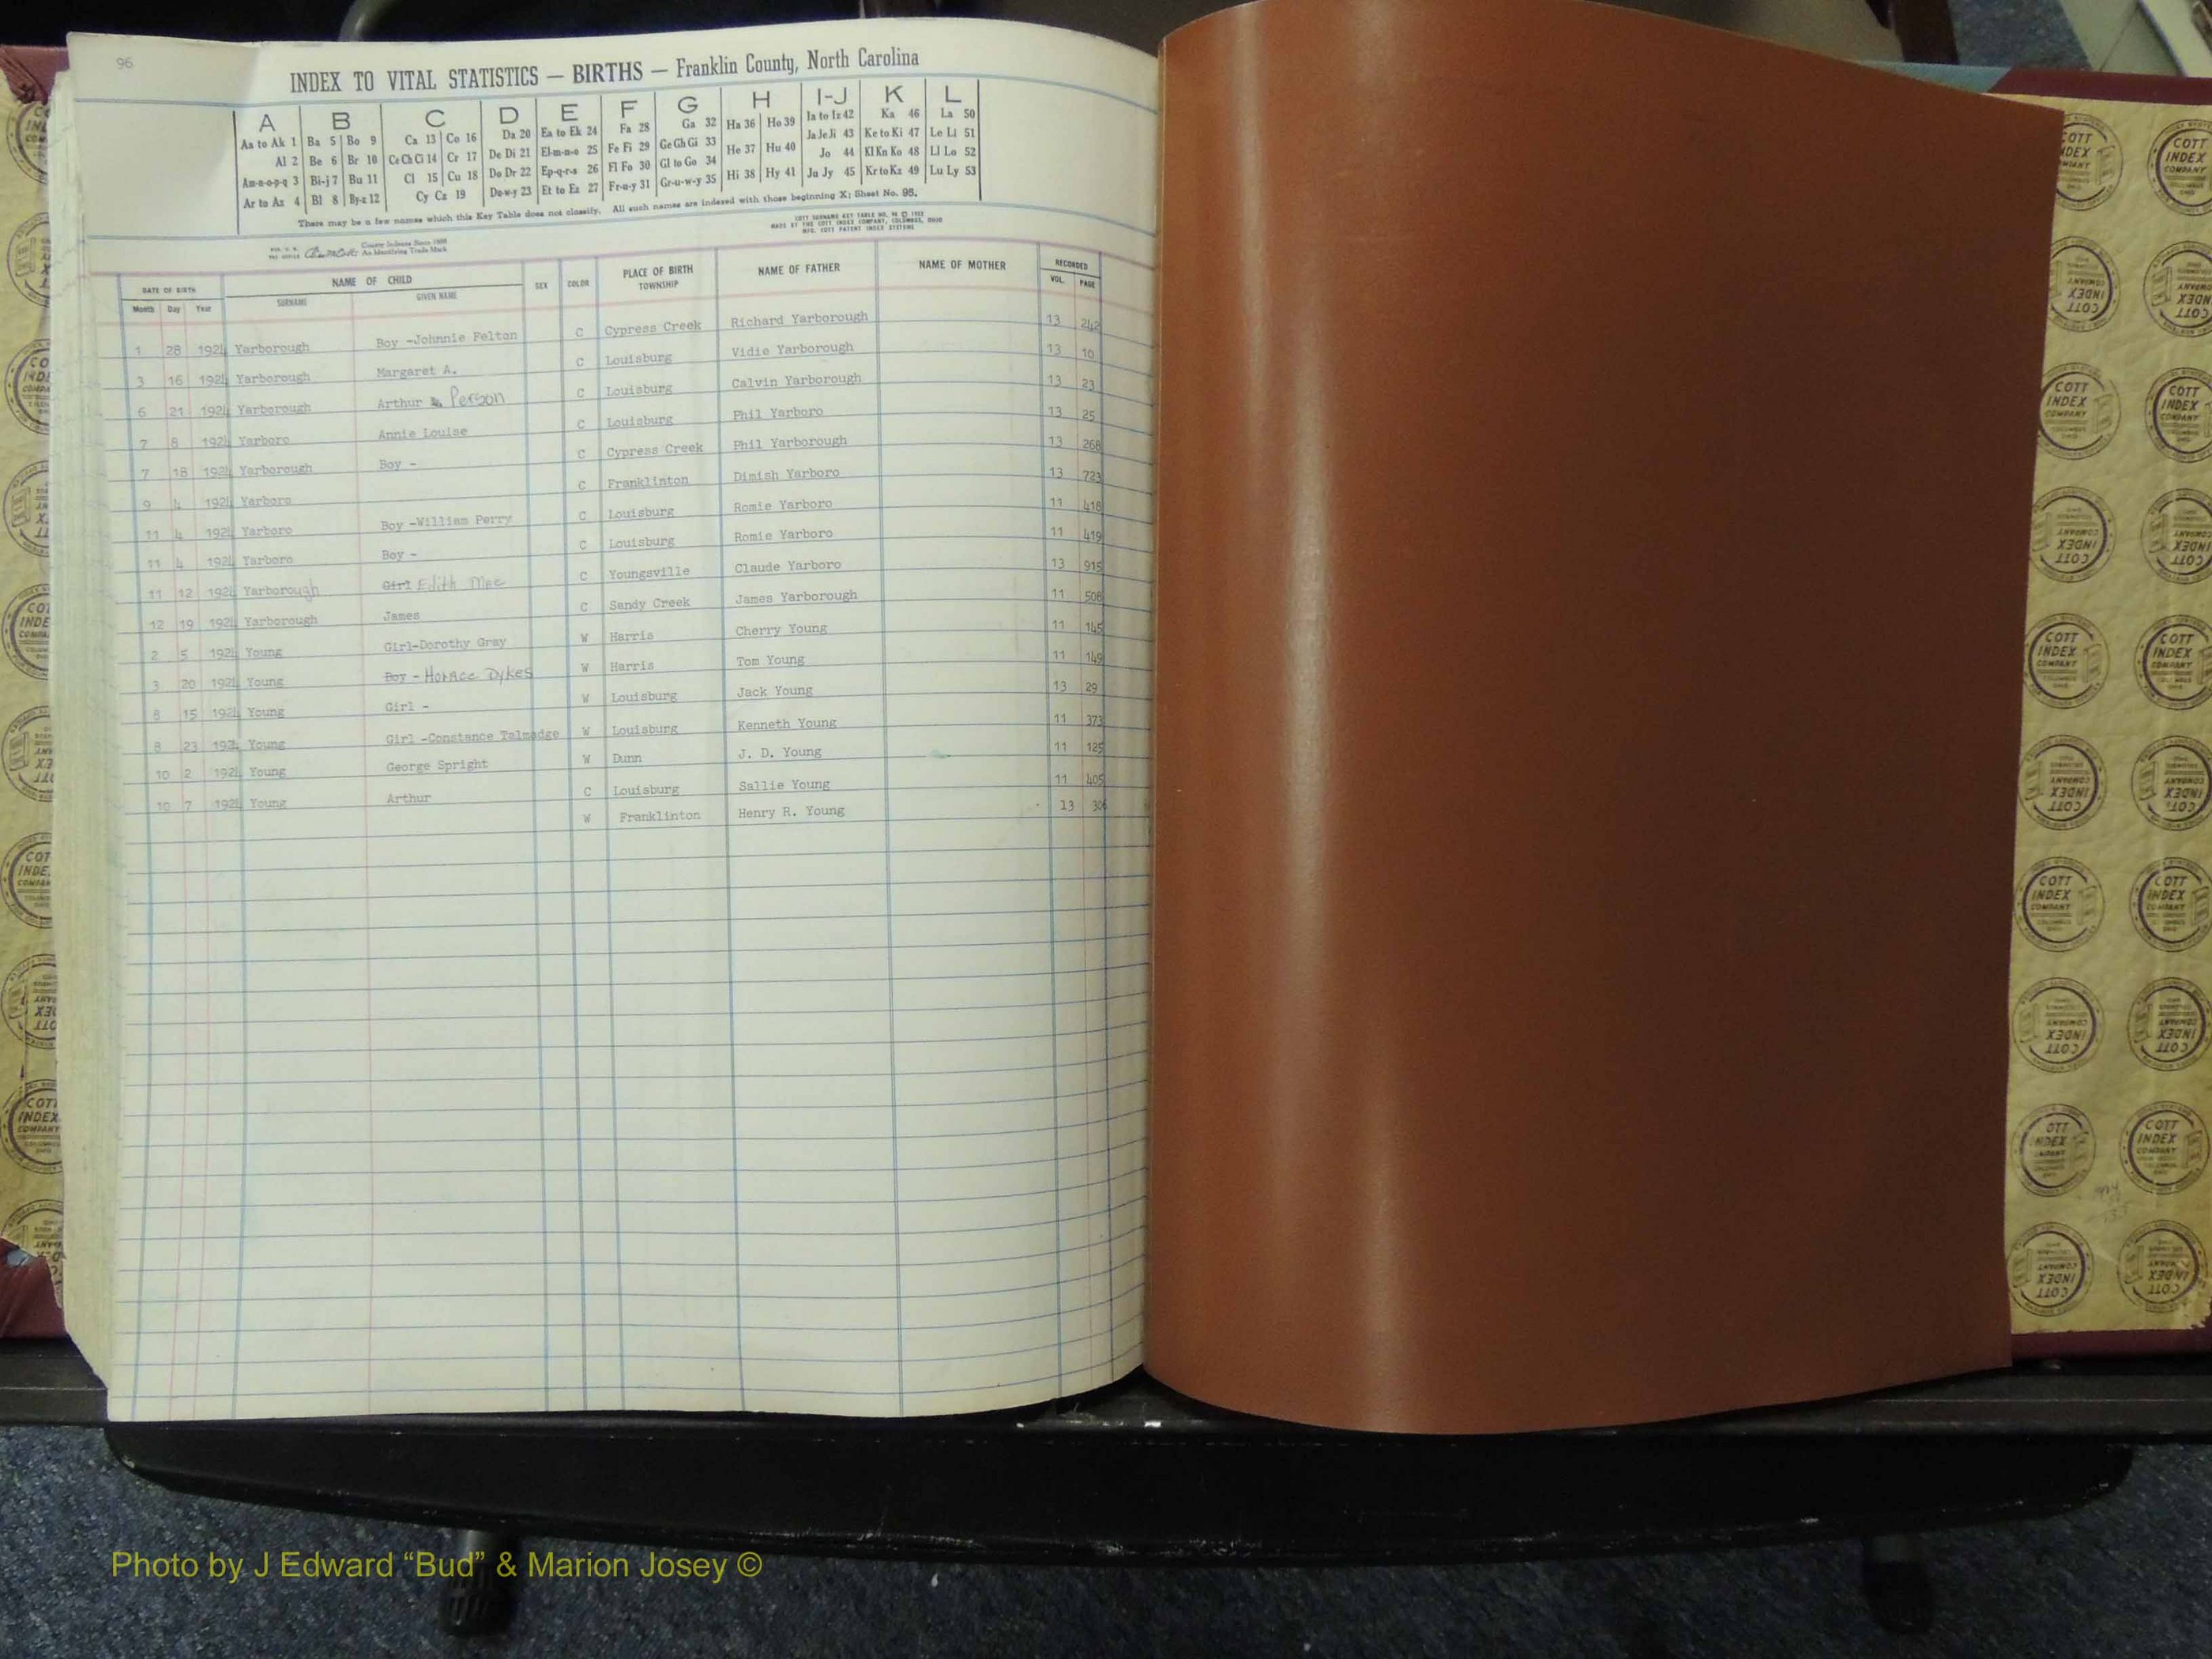 96
INDEX TO VITAL STATISTICS — BIRTHS — Franklin County, North Carolina
A B C D E F G H I-J K L
Aa to Ak 1 Ba 5 Bo 9 Ca 13 Co 16 Da 20 Ea to Ek 24 Fa 28 Ga 32 Ha 36 Ho 39 Ia to Iz 42 Ka 46 La 50
Al 2 Be 6 Br 10 Ce Ch Ci 14 Cr 17 De Di 21 El-m-n-o 25 Fe Fi 29 Ge Gh Gi 33 He 37 Hu 40 Ja Je Ji 43 Ke to Ki 47 Le Li 51
Am-n-o-p-q 3 Bi-j 7 Bu 11 Cl 15 Cu 18 Do Dr 22 Ep-q-r-s 26 Fl Fo 30 Gl to Go 34 Jo 44 Kl Kn Ko 48 Ll Lo 52
Ar to Az 4 Bl 8 By-z 12 Cy Cz 19 Du-w-y 23 Et to Ez 27 Fr-u-y 31 Gr-u-w-y 35 Hi 38 Hy 41 Ju Jy 45 Kr to Kz 49 Lu Ly 53
There may be a few names which this Key Table does not classify. All such names are indexed with those beginning X; Sheet No. 95.
COTT SURNAME KEY TABLE NO. 96 © 1922
MADE BY THE COTT INDEX COMPANY, COLUMBUS, OHIO
MFG. COTT PATENT INDEX SYSTEMS
County Indexes Since 1888
An Identifying Trade Mark
DATE OF BIRTH NAME OF CHILD SEX COLOR PLACE OF BIRTH TOWNSHIP NAME OF FATHER NAME OF MOTHER RECORDED
Month Day Year SURNAME GIVEN NAME VOL. PAGE
1 28 1924 Yarborough Boy -Johnnie Felton C Cypress Creek Richard Yarborough 13 242
3 16 1924 Yarborough Margaret A. C Louisburg Vidie Yarborough 13 10
6 21 1924 Yarborough Arthur Person C Louisburg Calvin Yarborough 13 23
7 8 1924 Yarboro Annie Louise C Louisburg Phil Yarboro 13 25
7 18 1924 Yarborough Boy - C Cypress Creek Phil Yarborough 13 268
9 4 1924 Yarboro C Franklinton Dimish Yarboro 13 723
11 4 1924 Yarboro Boy -William Perry C Louisburg Romie Yarboro 11 418
11 4 1924 Yarboro Boy - C Louisburg Romie Yarboro 11 419
11 12 1924 Yarborough Girl Edith Mae C Youngsville Claude Yarboro 13 915
12 19 1924 Yarborough James C Sandy Creek James Yarborough 11 508
2 5 1924 Young Girl-Dorothy Gray W Harris Cherry Young 11 145
3 20 1924 Young Boy - Horace Dykes W Harris Tom Young 11 149
8 15 1924 Young Girl - W Louisburg Jack Young 13 29
8 23 1924 Young Girl -Constance Talmadge W Louisburg Kenneth Young 11 373
10 2 1924 Young George Spright W Dunn J. D. Young 11 125
10 7 1924 Young Arthur C Louisburg Sallie Young 11 405
W Franklinton Henry R. Young 13
COTT INDEX COMPANY COLUMBUS OHIO
Photo by J Edward “Bud” & Marion Josey ©